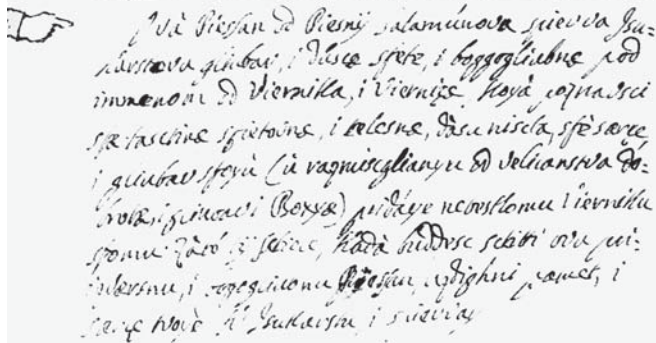 Ova Piessan od Piesnij Salamunova spievva Isu-
karstova gliubav, i dusce sfete, i boggogliubne pod
immenom od Viernika, i Viernize, koya poznavsci
sfe tasctine sfietovne, i telesne, dàsu niscta, sfè sarce
i gliubav sfoyu (ù razmisc glianyu od velicanstva dò-
brote, i gliubavi Boxye) pridàye nebeskomu Vierniku
sfomu kadà buddesc sctiti ovu pri-
i Piessan, uzdighni pamet, i
sarce tvoyè k' Isukarstu, i spievay